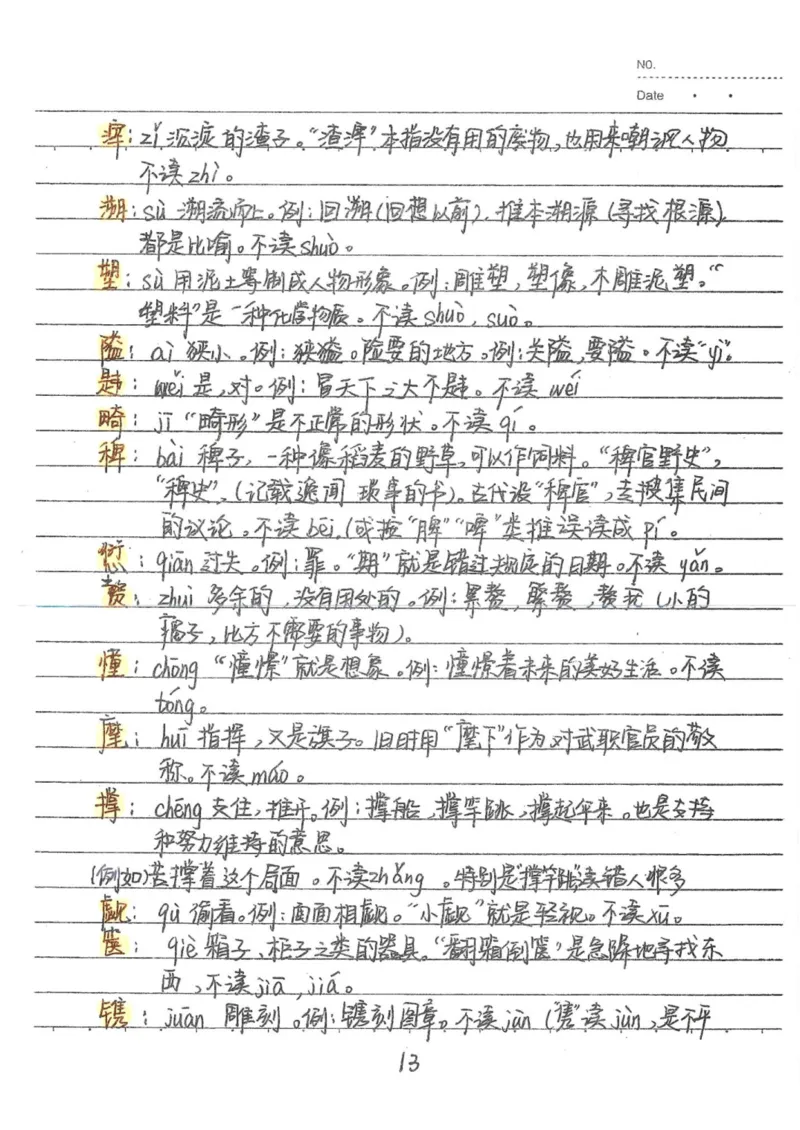 NO.
Date
滓：zǐ 沉淀的渣子。“渣滓”本指没有用的废物，也用来嘲讽人物
不读zhì。
溯：sù 溯流而上。例：回溯（回想以前），推本溯源（寻找根源），
都是比喻。不读shuò。
塑：sù 用泥土等制成人物形象。例：雕塑，塑像，木雕泥塑。“
塑料”是一种化学物质。不读shuò，suò。
隘：ài 狭小。例：狭隘。险要的地方。例：关隘，要隘。不读“yì”。
韪：wěi 是，对。例：冒天下之大不韪。不读 wéi
畸：jī “畸形”是不正常的形状。不读qí。
稗：bài 稗子，一种像稻麦的野草，可以作饲料。“稗官野史”，
“稗史”，（记载逸闻琐事的书）。古代设“稗官”，去搜集民间
的议论。不读bēi，（或按“脾”“啤”类推误读成pí。
愆：qiān 过失。例：罪。“期”就是错过规定的日期。不读yǎn。
赘：zhuì 多余的，没有用处的。例：累赘，繁赘，赘疣（小的
瘊子，比方不需要的事物）。
憧：chōng “憧憬”就是想象。例：憧憬着未来的美好生活。不读
tóng。
麾：huī 指挥，又是旗子。旧时用“麾下”作为对武职官员的敬
称。不读máo。
撑：chēng 支住，推开。例：撑船，撑竿跳，撑起伞来。也是支持
和努力维持的意思。
（例如）苦撑着这个局面。不读zhǎng。特别是“撑竿跳”读错人很多
觑：qù 偷看。例：面面相觑。“小觑”就是轻视。不读xū。
箧：qiè 箱子、柜子之类的器具。“翻箱倒箧”是急降地寻找东
西，不读jiā，jiá。
镌：juān 雕刻。例：镌刻图章。不读jùn（“隽”读jùn，是不平
13